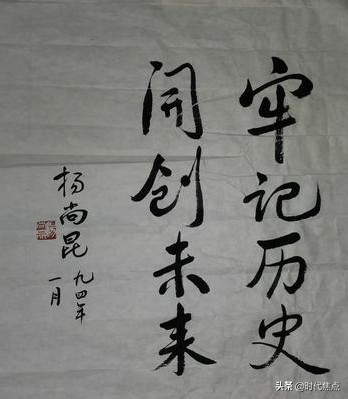 牢记历史
开创未来
杨尚昆
九四年
一月
头条 @时代焦点